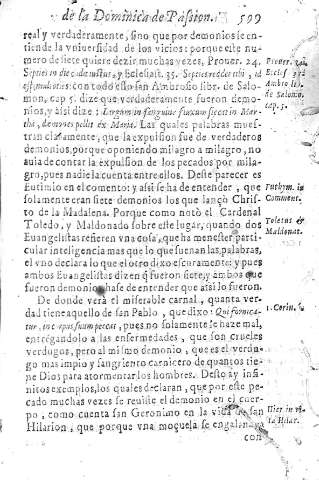 de la Dominica de Passion. 509
real y verdaderamente, sino que por demonios se en-
tiende la vniuersidad de los vicios: porque este nu-
mero de siete quiere dezir muchas vezes, Prouer. 24.
Septies in die cadit iustus, y Eclesiast. 35. Septies reddet tibi, id
est, multoties: con todo esto san Ambrosio libr. de Salo-
mon, cap. 5. dize que verdaderamente fueron demo-
nios, y assi dize: Largum in sanguine fluxum siccat in Mar-
tha, dæmones pellit ex Maria. Las quales palabras mues-
tran claramente, que la expulsion fue de verdaderos
demonios, porque oponiendo milagro a milagro, no
auia de contar la expulsion de los pecados por mila-
gro, pues nadie la cuenta entre ellos. Deste parecer es
Eutimio en el comento: y assi se ha de entender, que
solamente eran siete demonios los que lançò Chris-
to de la Madalena. Porque como notò el Cardenal
Toledo, y Maldonado sobre este lugar, quando dos
Euangelistas refieren vna cosa, que ha menester parti-
cular inteligencia mas que lo que suenan las palabras,
el vno declara lo que el otro dixo escuramente: y pues
ambos Euangelistas dizen q̃ fueron siete, y ambos que
fueron demonios, hase de entender que assi lo fueron.
De donde verà el miserable carnal, quanta ver-
dad tiene aquello de san Pablo, que dixo: Qui fornica-
tur, in corpus suum peccat, pues no solamente le haze mal,
entregandolo a las enfermedades, que son crueles
verdugos, pero al mismo demonio, que es el verdu-
go mas impio y sangriento carnicero de quantos tie-
ne Dios para atormentar los hombres. Desto ay infi-
nitos exemplos, los quales declaran, que por este pe-
cado muchas vezes se reuiste el demonio en el cuer-
po, como cuenta san Geronimo en la vida de san
Hilarion, que porque vna moçuela se engalanaua
con
Prouer. 24.
Ecclesi. 35.
Ambro. lib.
de Salomo.
cap. 5.
Euthym. in
Comment.
Toletus &
Maldonat.
1. Corin. 6.
Hier in vi-
ta Hilar.